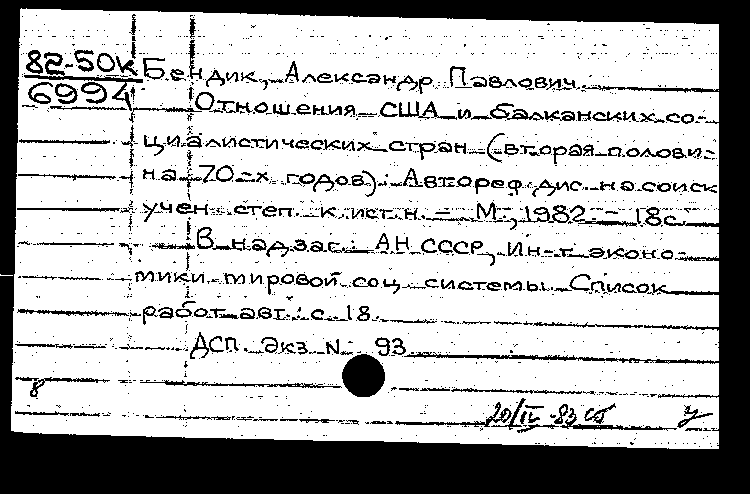 82-50К
6994
Бендик, Александр Павлович.
Отношения США и балканских со-
циалистических стран (вторая полови-
на 70-х годов): Автореф. дис. на соиск
учен. степ. к. ист. н. - М., 1982. - 18 с.
В надзаг.: АН СССР, Ин-т эконо-
мики мировой соц. системы. Список
работ авт.: с. 18.
ДСП. Экз. N: 93
8
20/IV -83